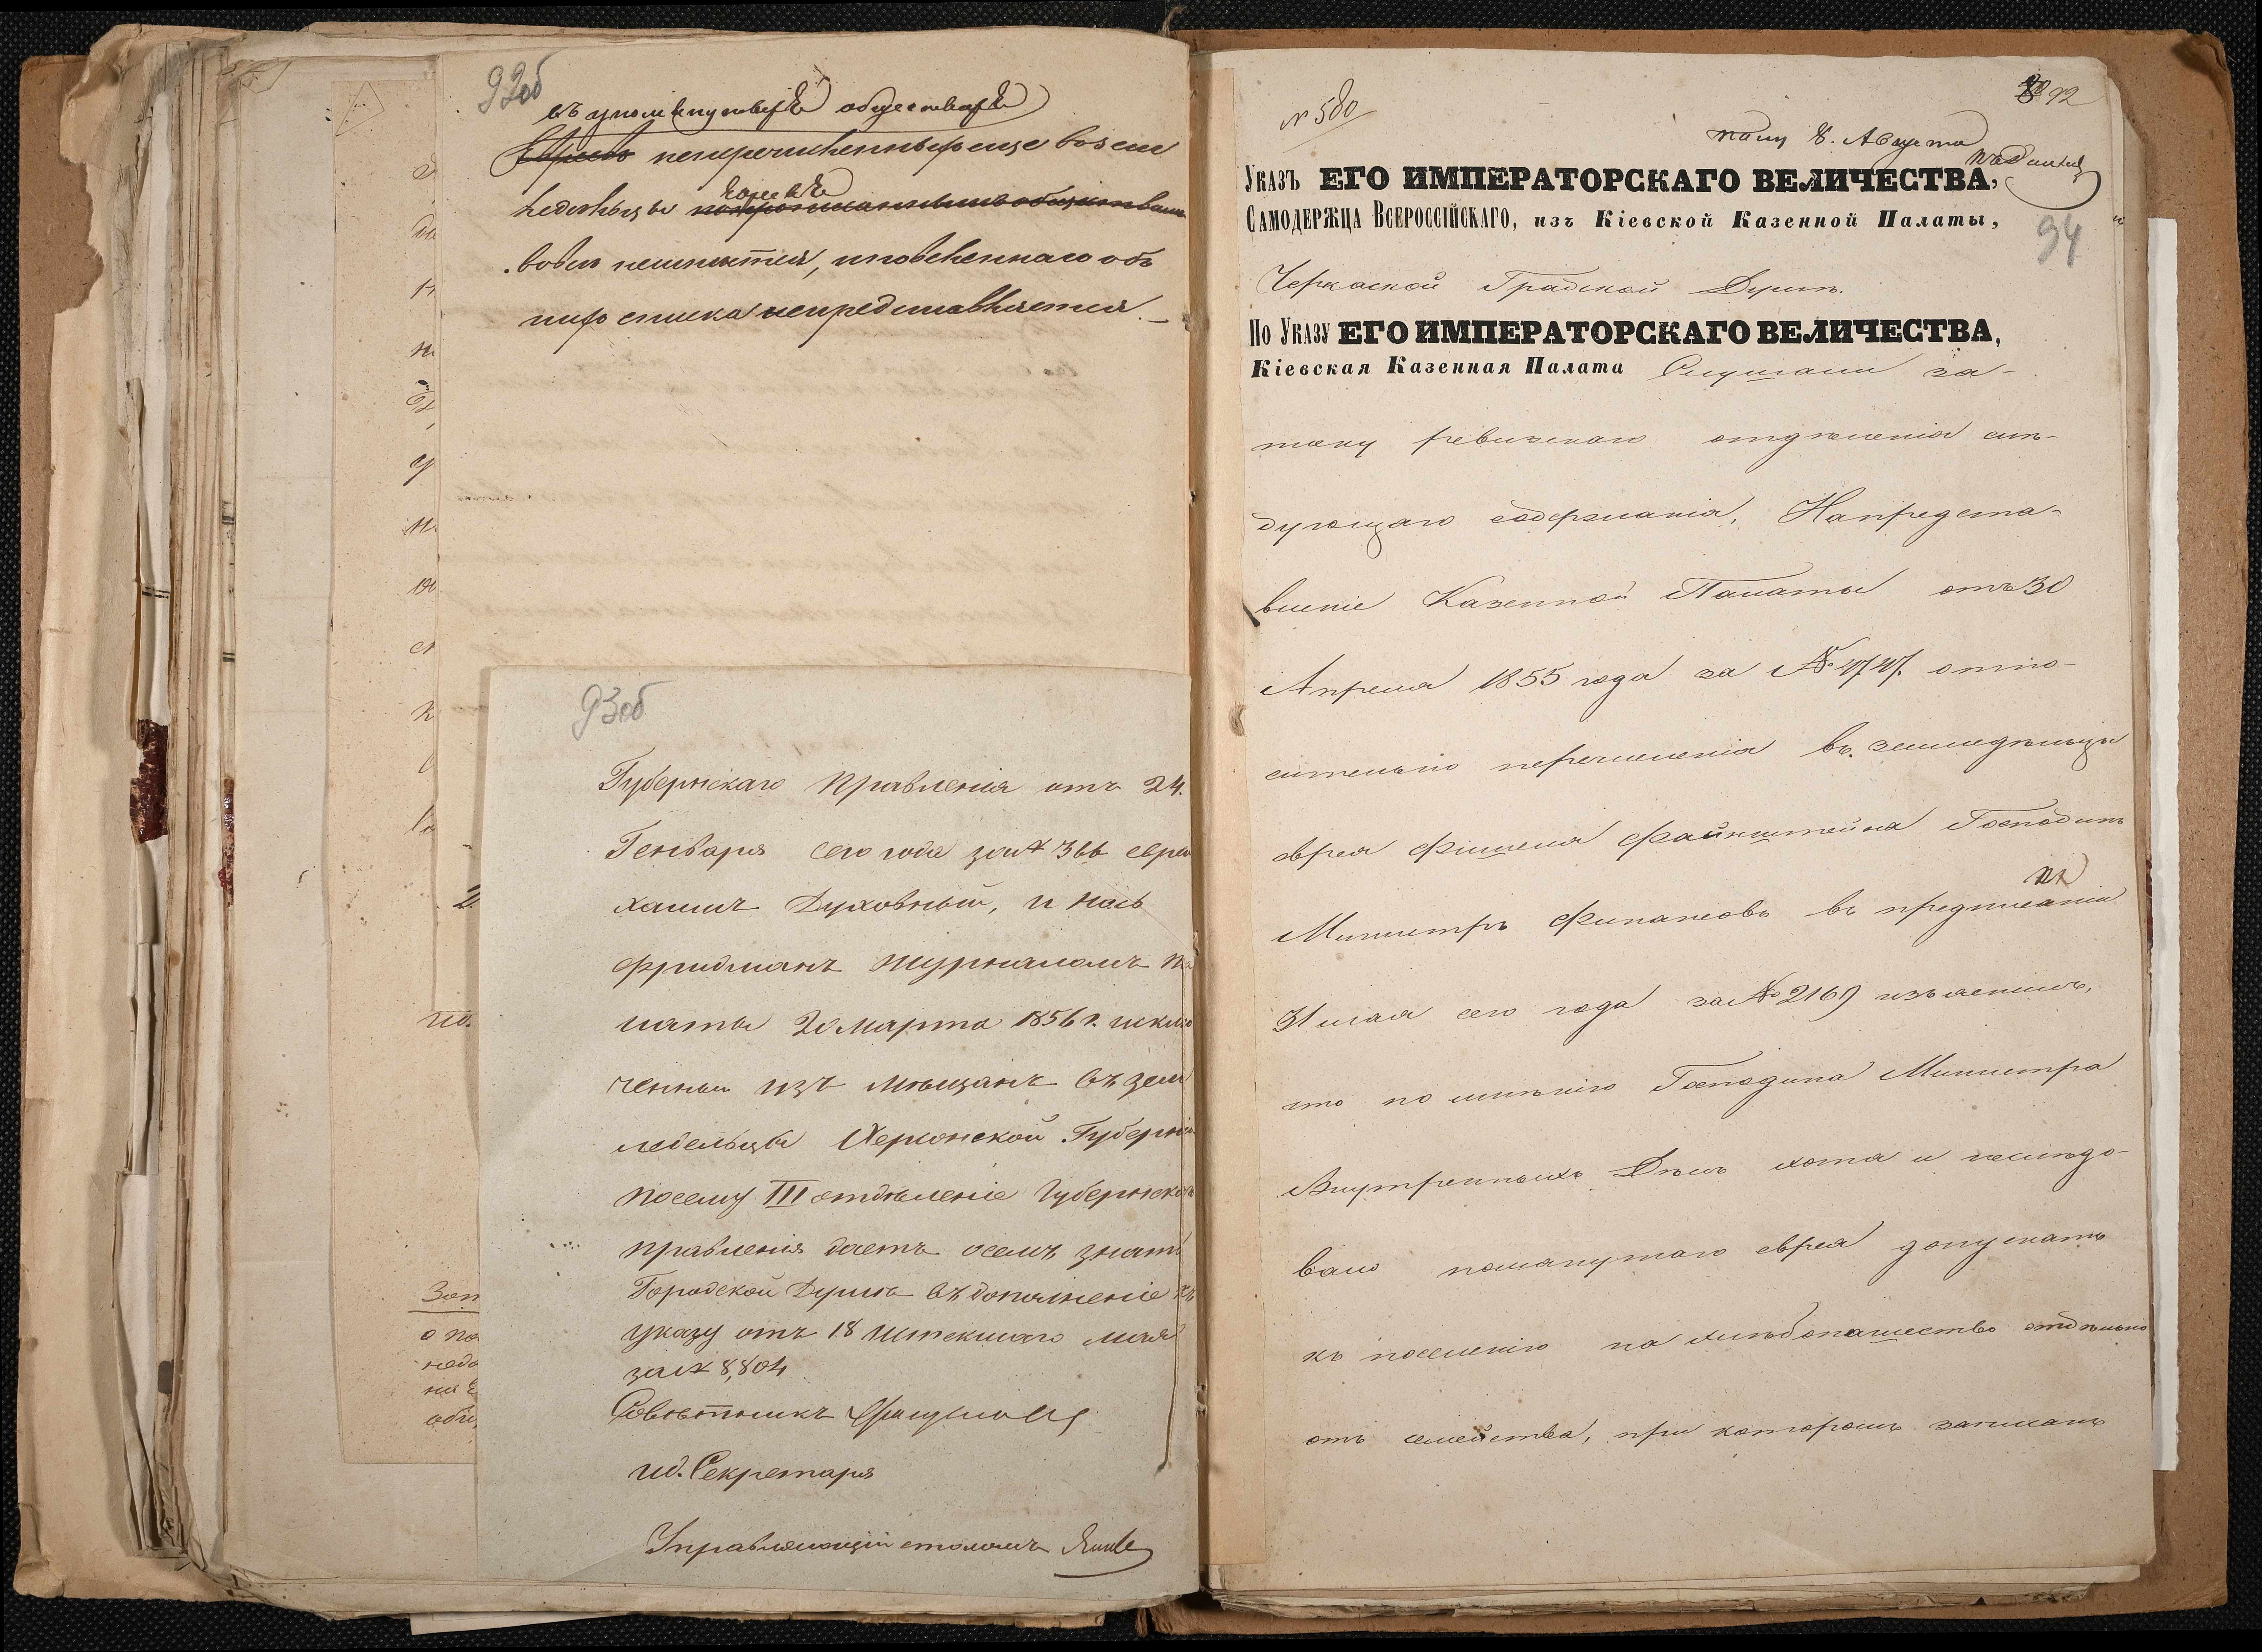 92об
въ упомянутыхъ обществахъ
Евреевъ неперечисленныхъ еще во земледѣльцы
. вовсе неимѣется, именнаго объ
нихъ списка непредставляется. —
93об
Губернскаго Правленія отъ 24.
Генваря сего года за № 366 евреи
Хаимъ Духовный, и Нось
Фридманъ журналомъ Па
латы 20 Марта 1856 г. исклю
ченны изъ мѣщанъ въ зем
ледельцы Херсонской Губерніи
посему III отдѣленіе Губернскаго
правленія даетъ осемъ знать
Городской Думѣ въ дополненіе къ
указу отъ 18 истекшаго мая
за № 8,804
Совѣтникъ
и.д. Секретаря
Управляющій столомъ
Зап
о по
недо
на Е
обще
№ 580
92
пол. 8. Августа
94
Указъ ЕГО ИМПЕРАТОРСКАГО ВЕЛИЧЕСТВА,
Самодержца Всероссійскаго, изъ Кіевской Казенной Палаты,
Черкаской Градской Думѣ.
По Указу ЕГО ИМПЕРАТОРСКАГО ВЕЛИЧЕСТВА,
Кіевская Казенная Палата Слушали за-
писку ревизскаго отдѣленія слѣ-
дующаго содержанія, Напредста-
вленіе Казенной Палаты отъ 30
Апреля 1855 года за № 4747. отно-
сительно перечисленія въ земледѣльцы
еврея Фишеля Файнштейна Господинъ
Министръ Финансовъ въ предписаніи
31 мая сего года за № 2169 изъяснилъ,
что по мнѣнію Господина Министра
Внутреннихъ Дѣлъ хотя и неслѣдо-
вало помянутаго еврея допускать
къ поселенію на хлѣбопашество отдѣльно
отъ семейства, при которомъ записанъ